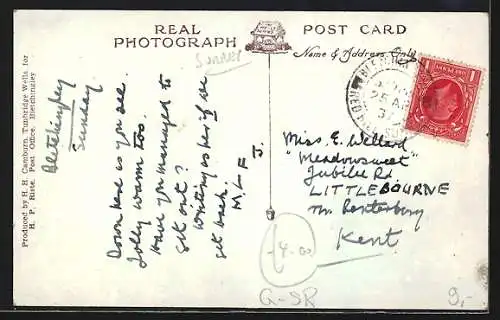 REAL PHOTOGRAPH
POST CARD
Name & Address Only
Surrey
Produced by T. H. Camburn, Tunbridge Wells, for
H. P. Riste, Post Office, Bletchingley
Bletchingley
Sunday
Down here as you see.
Jolly warm too.
Have you managed to
get out?
Writing as per if we
get back.
M. L. F J.
BLETCHINGLEY
REDHILL
Miss. E. Wellard
"Meadowsweet"
Jubilee Rd
LITTLEBOURNE
Nr. Canterbury
Kent
G-SR
9,-